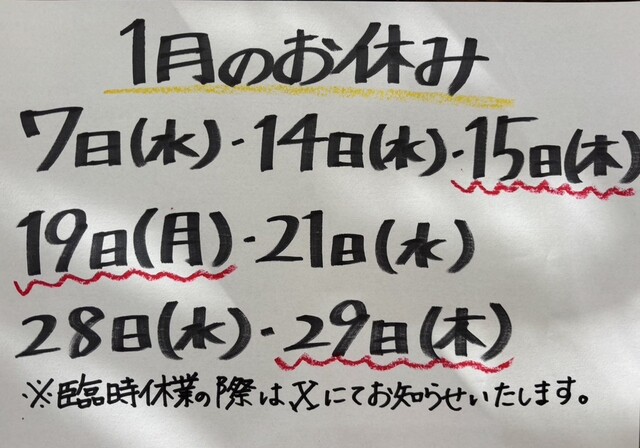 1月のお休み
7日(水)・14日(水)・15日(木)
19日(月)・21日(水)
28日(水)・29日(木)
※臨時休業の際はXにてお知らせいたします。